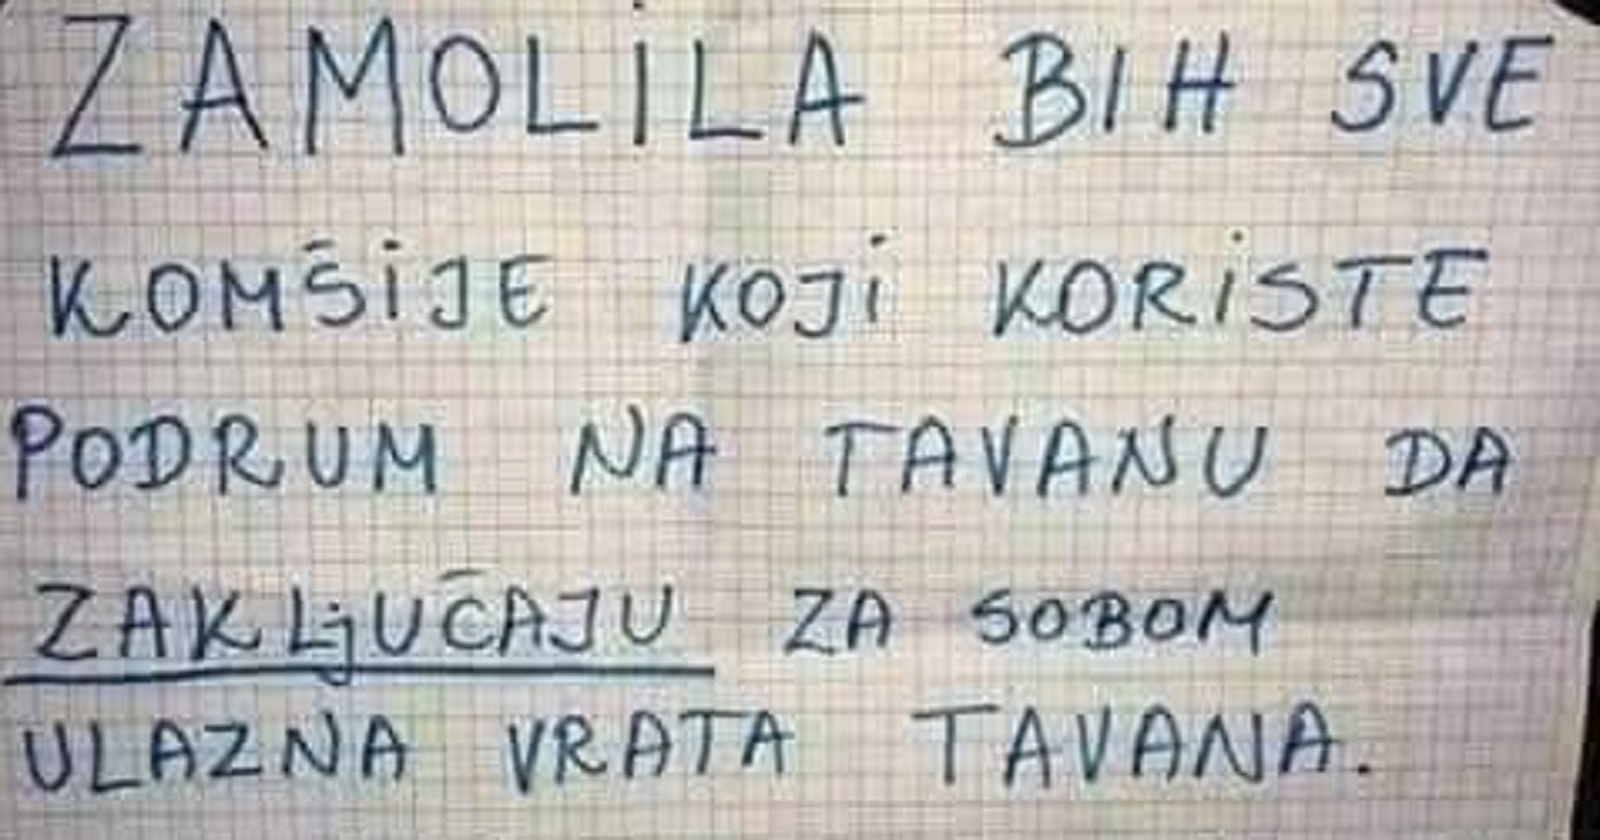 ZAMOLILA BIH SVE
KOMŠIJE KOJI KORISTE
PODRUM NA TAVANU DA
ZAKLjUČAJU ZA SOBOM
ULAZNA VRATA TAVANA.